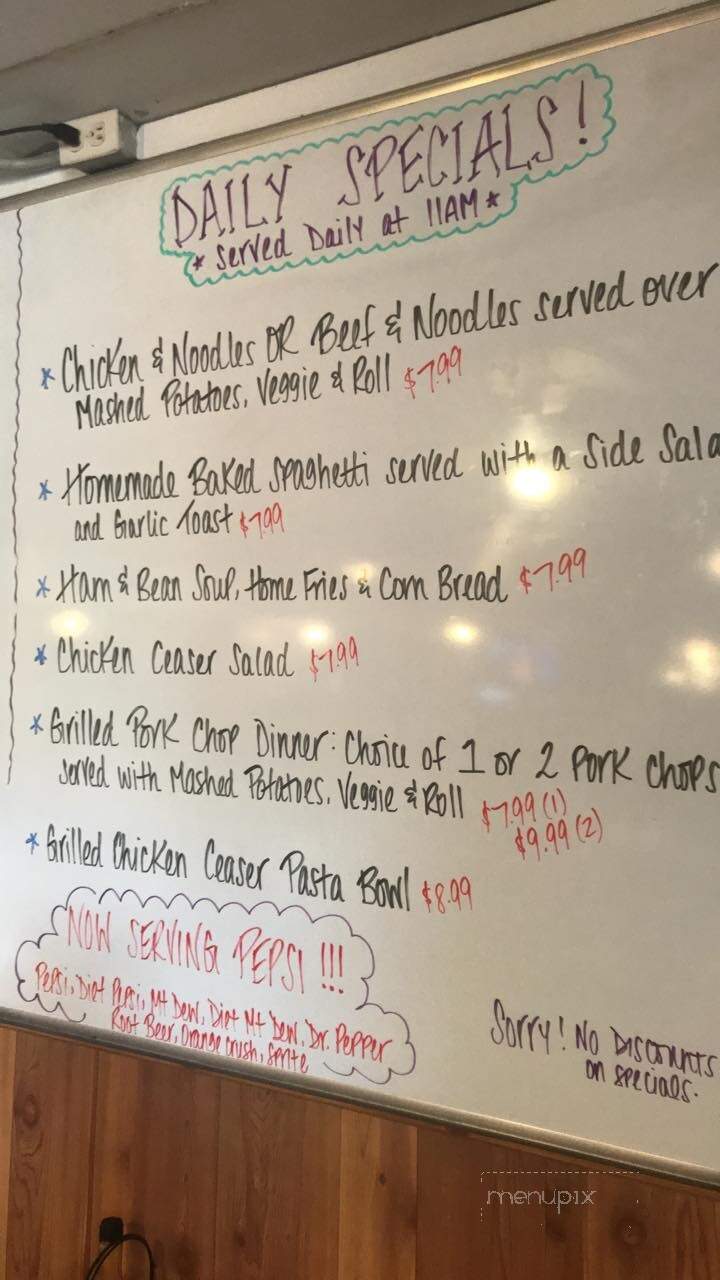 DAILY SPECIALS!
* Served Daily at 11AM *
* Chicken & Noodles OR Beef & Noodles served over
Mashed Potatoes, Veggie & Roll $7.99
* Homemade Baked Spaghetti served with a Side Sala
and Garlic Toast $7.99
* Ham & Bean Soup, Home Fries & Corn Bread $7.99
* Chicken Ceaser Salad $7.99
* Grilled Pork Chop Dinner: Choice of 1 or 2 Pork Chops
served with Mashed Potatoes, Veggie & Roll $7.99 (1)
$9.99 (2)
* Grilled Chicken Ceaser Pasta Bowl $8.99
NOW SERVING PEPSI !!!
Pepsi, Diet Pepsi, Mt Dew, Diet Mt Dew, Dr. Pepper
Root Beer, Orange Crush, Sprite
Sorry! No Discounts
on specials.
menupix